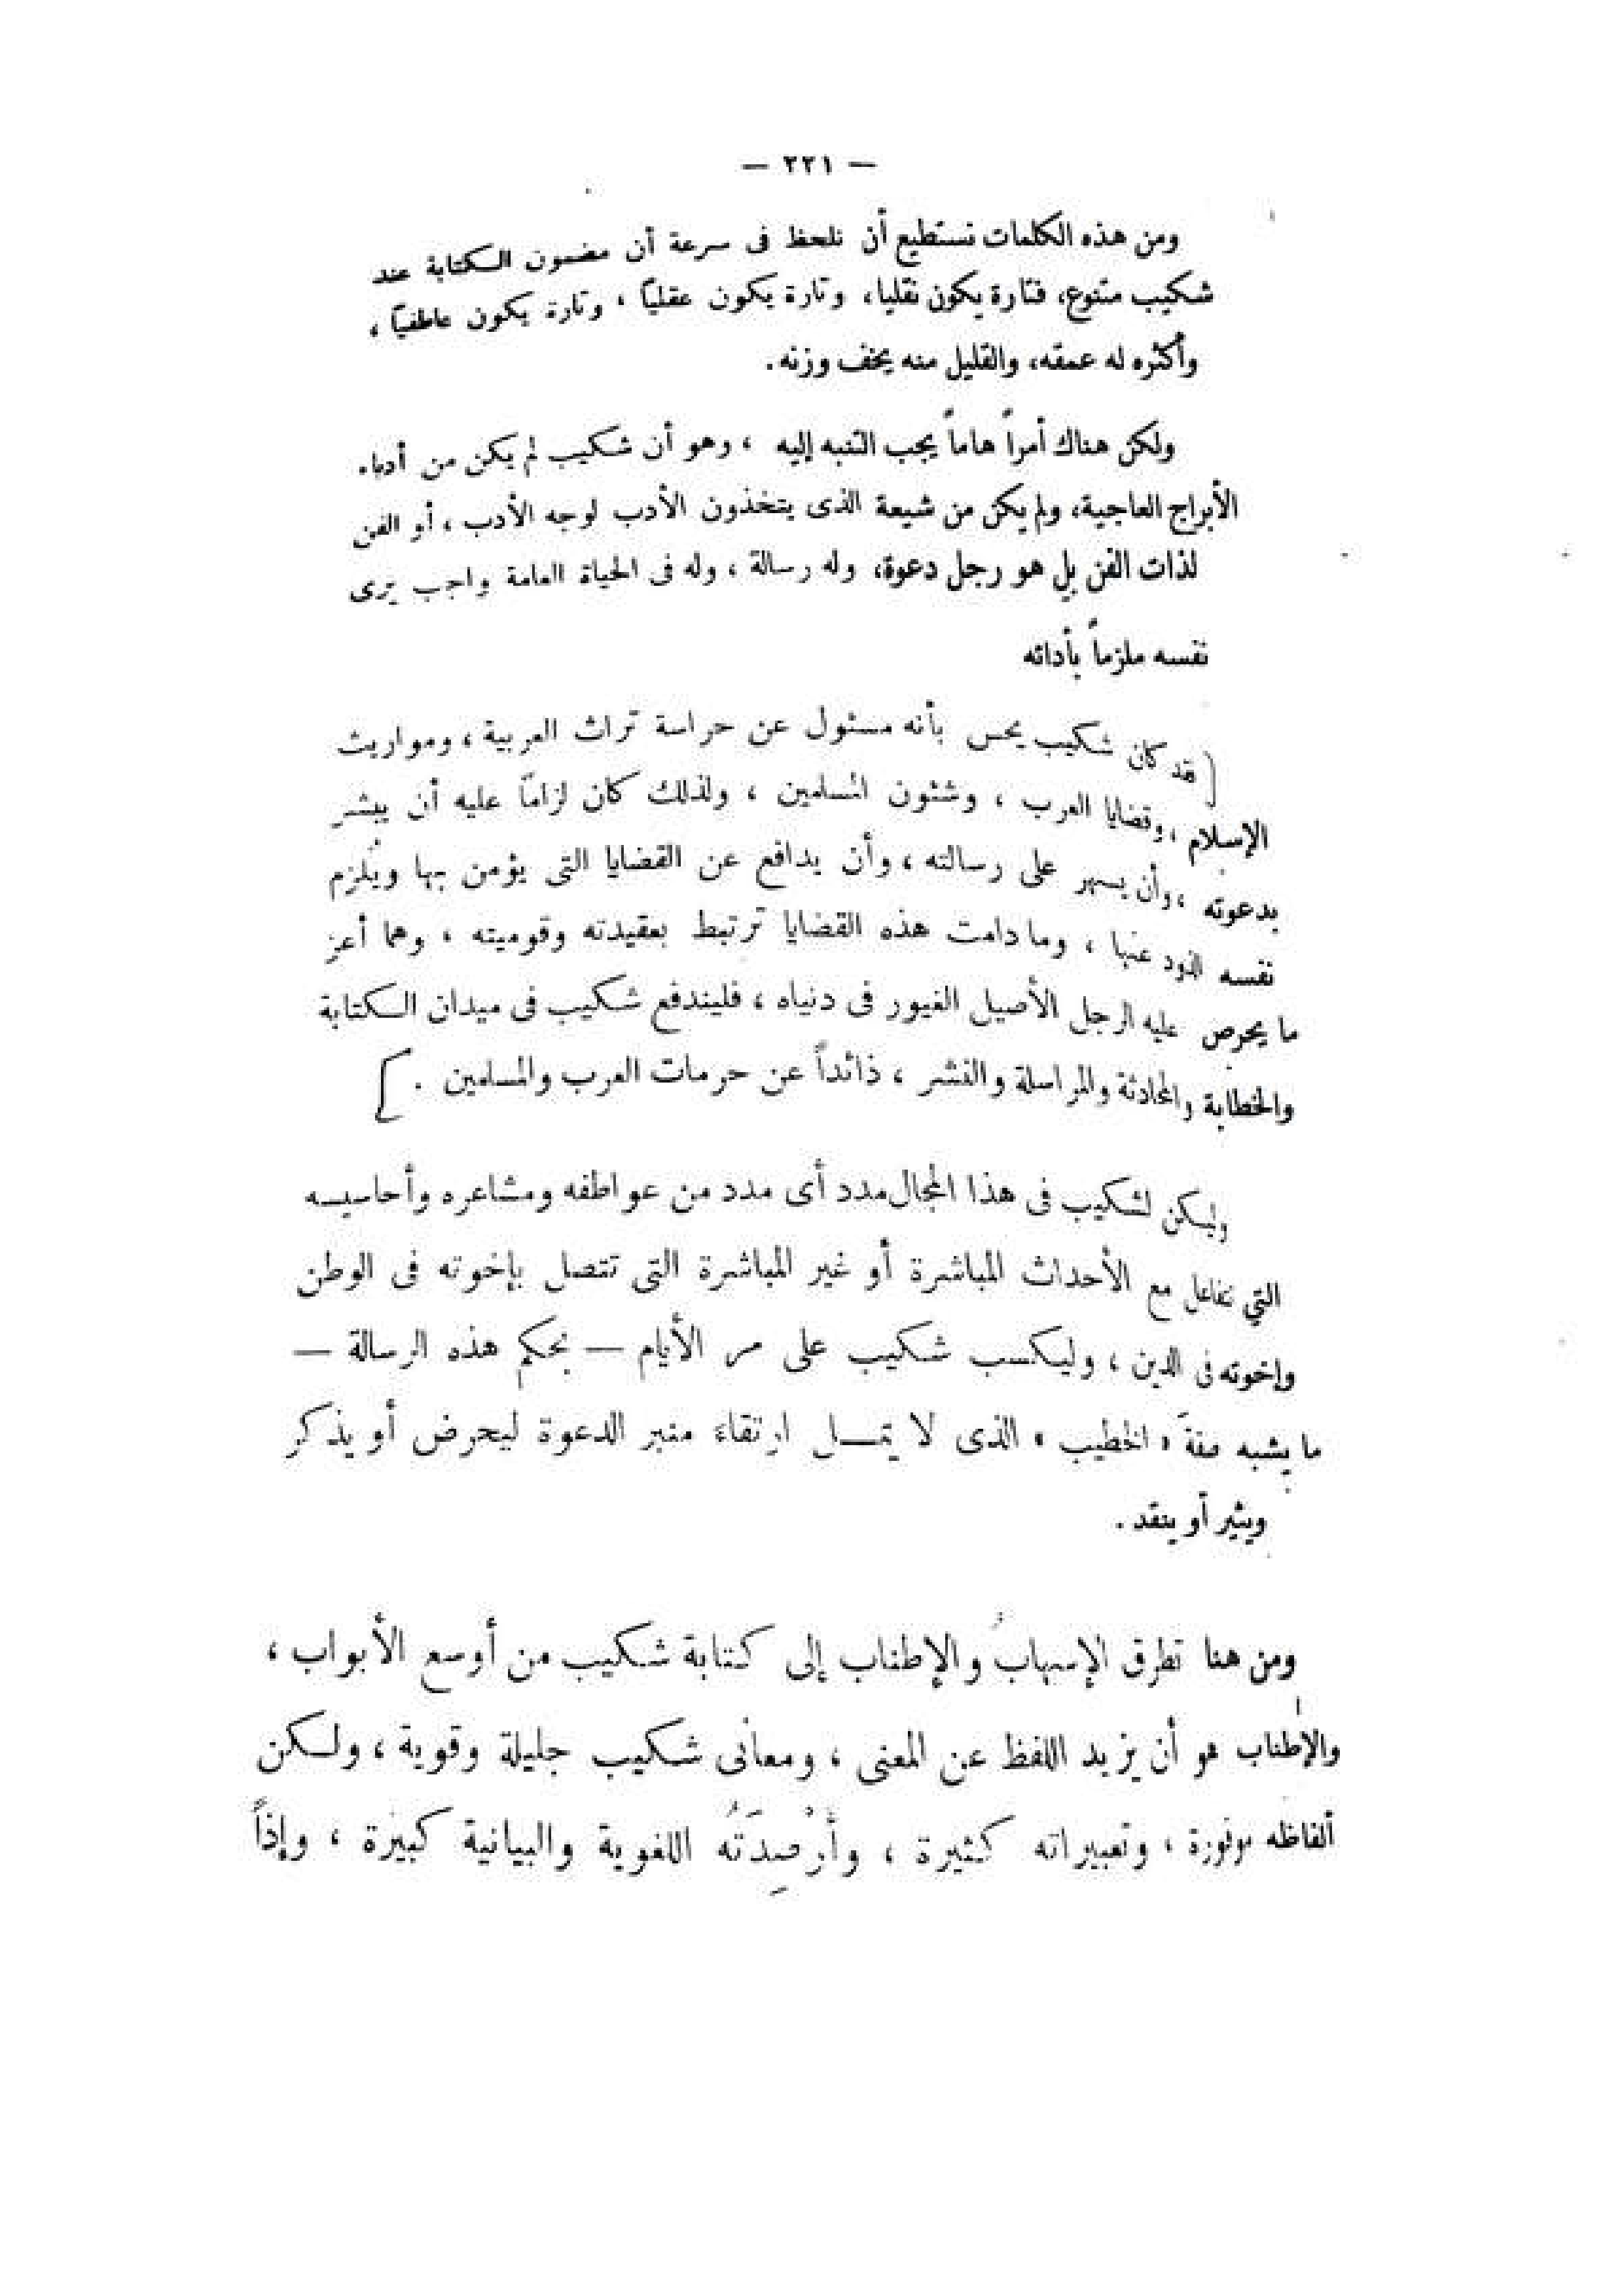 — ٢٢١ —
ومن هذه الكلمات نستطيع أن نلحظ فى سرعة أن مضمون الكتابة عند
شكيب متنوع، فتارة يكون نقليا، وتارة يكون عقليًا ، وتارة يكون عاطفيًا ،
وأكثره له عمقه، والقليل منه يخف وزنه .
ولكن هناك أمراً هاماً يجب التنبه إليه ، وهو أن شكيب لم يكن من أدباء
الأبراج العاجية، ولم يكن من شيعة الذى يتخذون الأدب لوجه الأدب ، أو الفن
لذات الفن بل هو رجل دعوة، وله رسالة ، وله فى الحياة العامة واجب يرى
نفسه ملزماً بأدائه
قد كان شكيب يحس بأنه مسئول عن حراسة تراث العربية ، ومواريث
الإسلام ، وقضايا العرب ، وشئون المسلمين ، ولذلك كان لزامًا عليه أن يبشر
بدعوته ، وأن يسهر على رسالته ، وأن يدافع عن القضايا التى يؤمن بها ويُلزم
نفسه الذود عنها ، وما دامت هذه القضايا ترتبط بعقيدته وقوميته ، وهما أعز
ما يحرص عليه الرجل الأصيل الغيور فى دنياه ، فليندفع شكيب فى ميدان الكتابة
والخطابة والمحادثة والمراسلة والنشر ، ذائداً عن حرمات العرب والمسلمين .
وليكن لشكيب فى هذا المجال مدد أى مدد من عواطفه ومشاعره وأحاسيسه
التي تتفاعل مع الأحداث المباشرة أو غير المباشرة التى تتصل بإخوته فى الوطن
وإخوته فى الدين ، وليكسب شكيب على مر الأيام — بحكم هذه الرسالة —
ما يشبه صفةَ « الخطيب » الذى لا يمل ارتقاءَ منبر الدعوة ليحرض أو يذكر
ويثير أو ينقد .
ومن هنا تطرق الإسهابُ والإطناب إلى كتابة شكيب من أوسع الأبواب ،
والإطناب هو أن يزيد اللفظ عن المعنى ، ومعانى شكيب جليلة وقوية ، ولكن
ألفاظه موفورة ، وتعبيراته كثيرة ، وأرْصِدَتُه اللغوية والبيانية كبيرة ، وإذاً